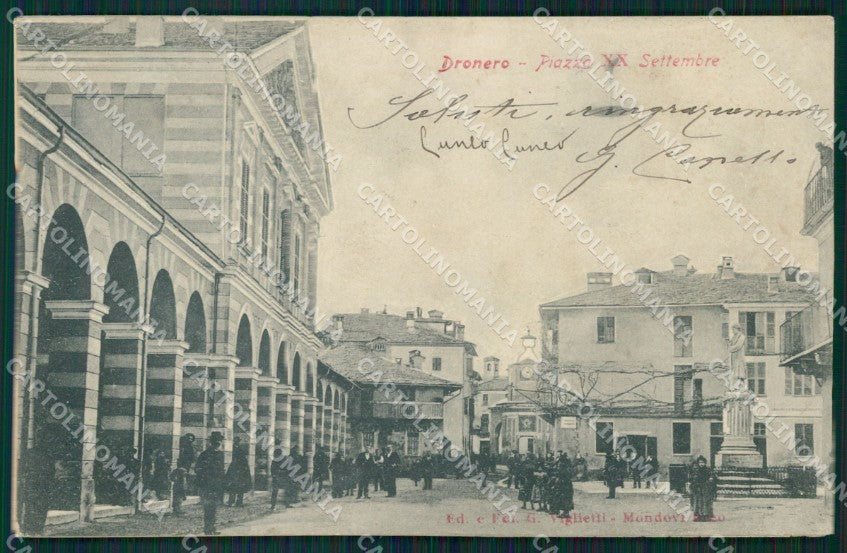 Dronero - Piazza XX Settembre
Saluti, ringraziamenti
Cuneo Cuneo
G.
Ed. e Fot. G. Viglietti - Mondovì
CARTOLINOMANIA